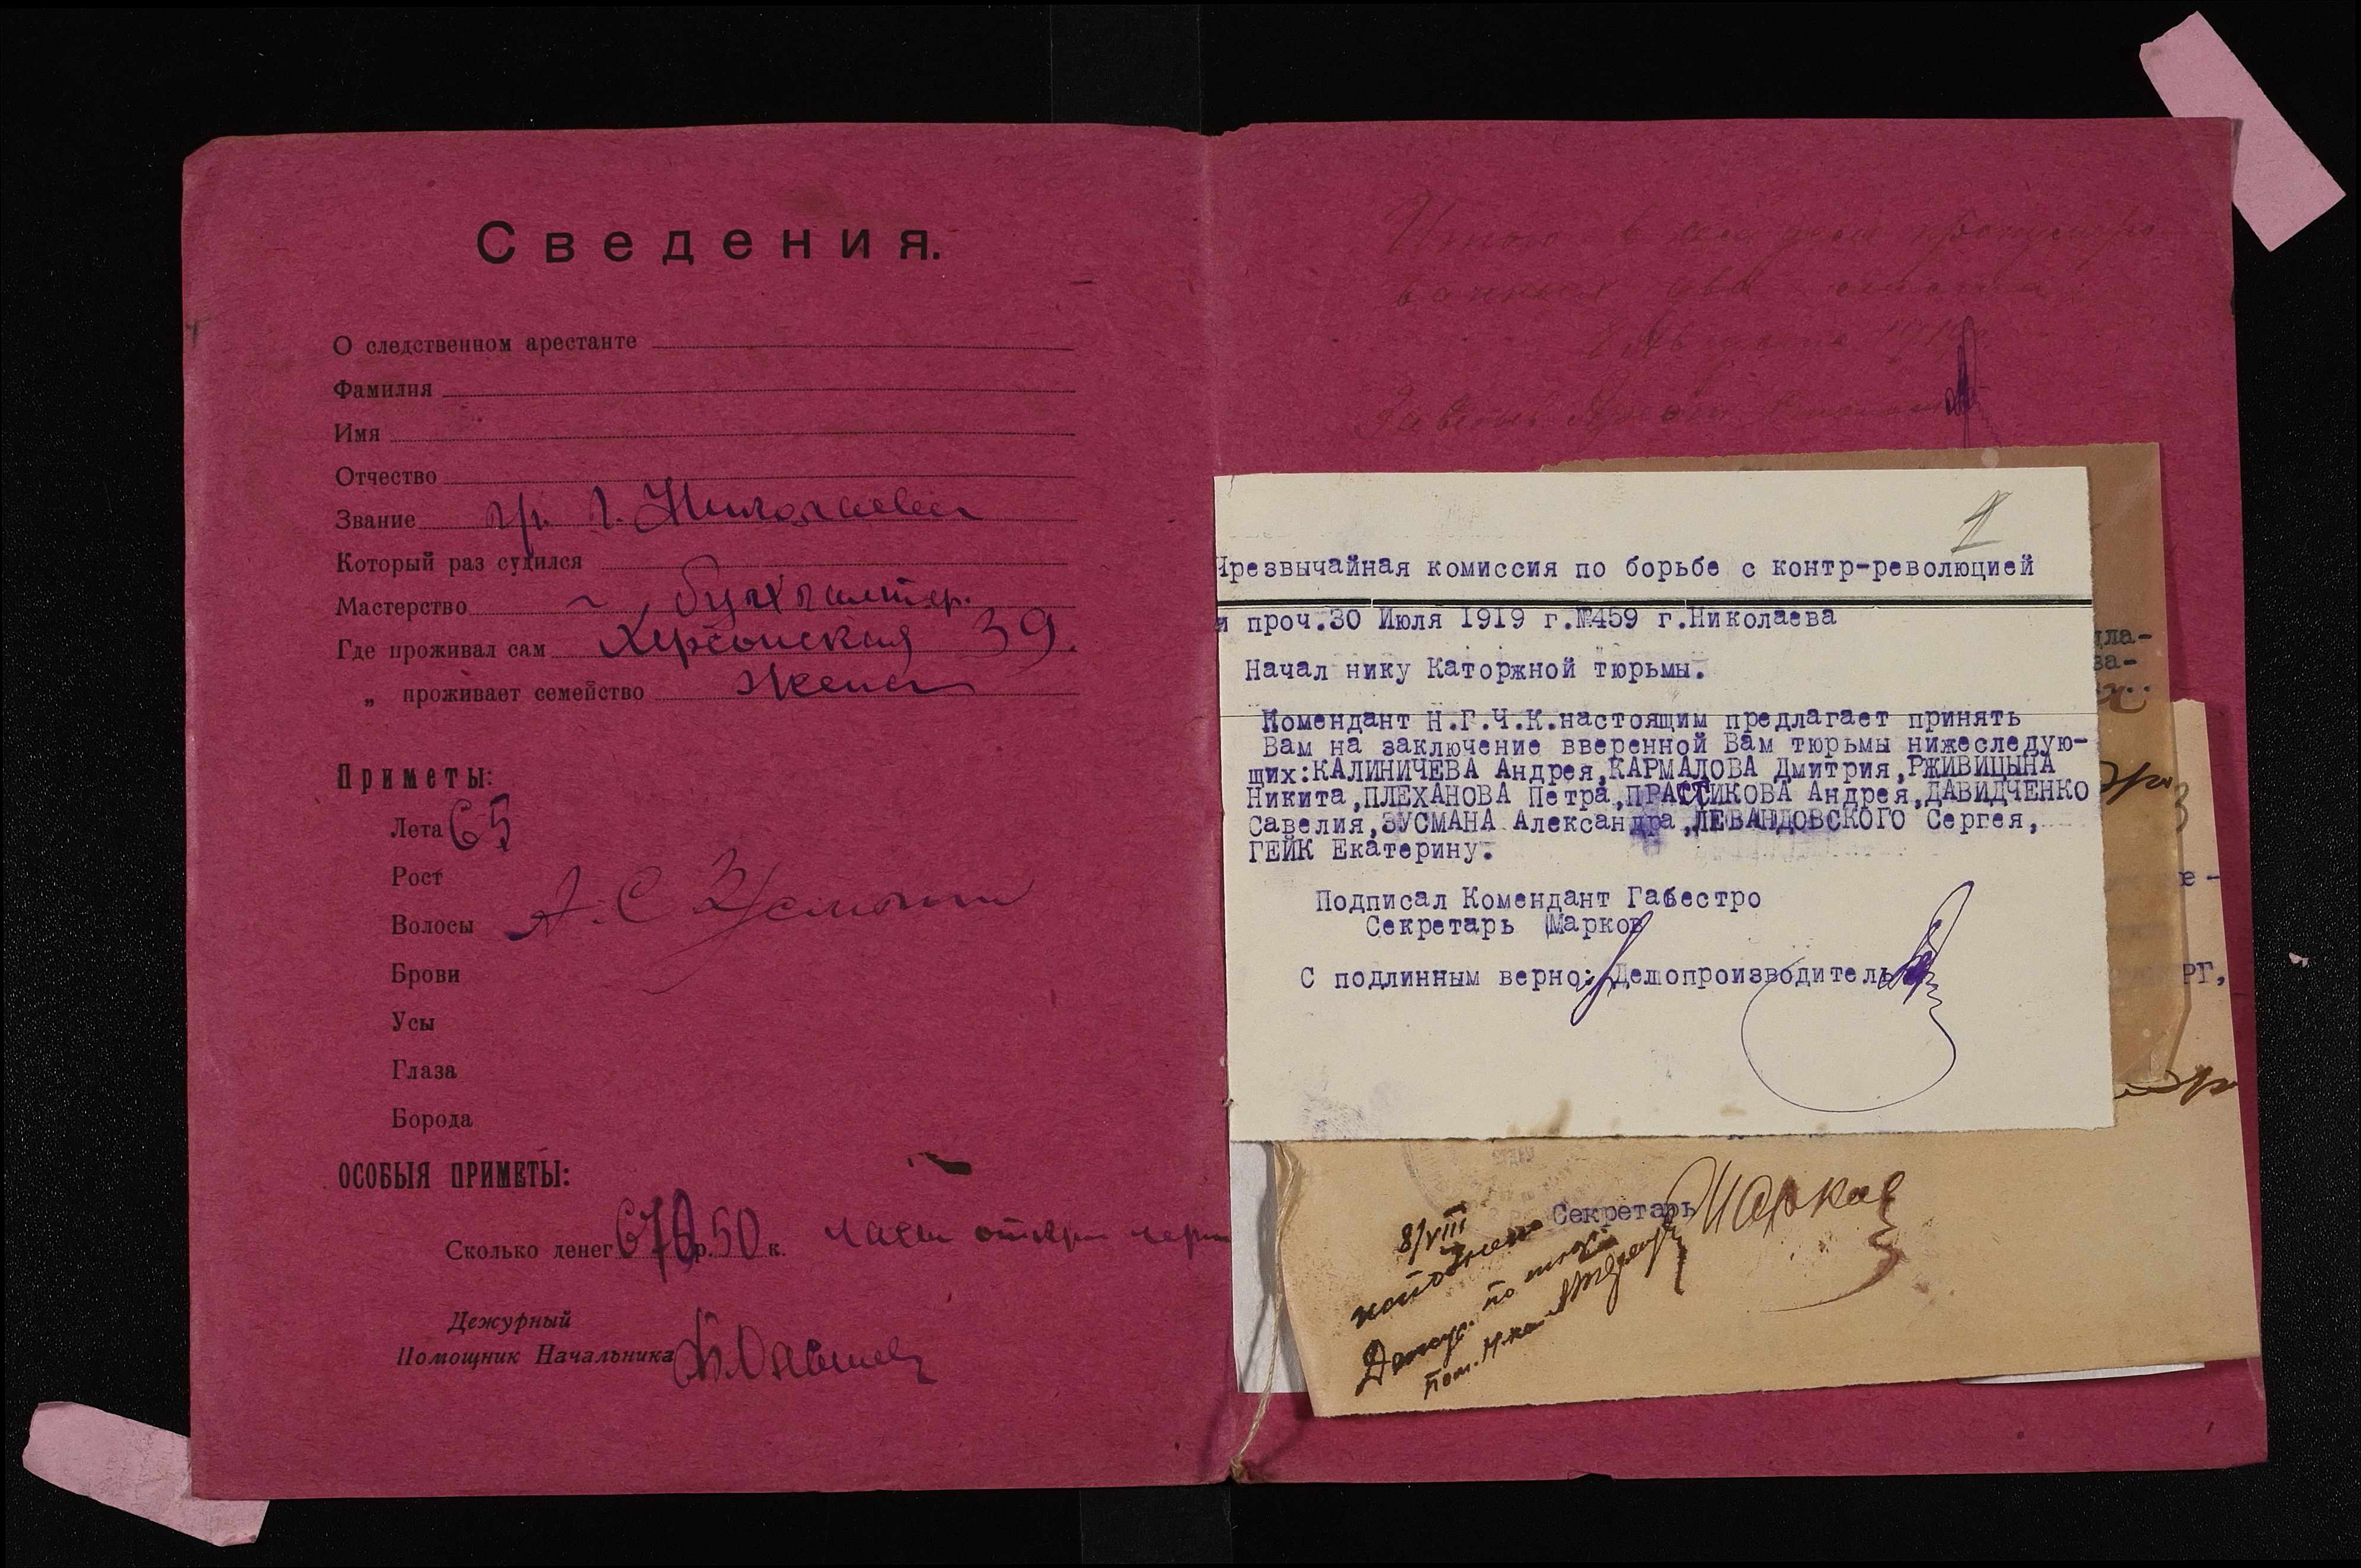 Сведения.
О следственном арестанте
Фамилия
Имя
Отчество
Звание гр. г. Николаева
Который раз судился
Мастерство бухгалтер.
Где проживал сам Херсонская 39.
„ проживает семейство жена
Приметы:
Лета 65
Рост
Волосы
А. С. Зусман
Брови
Усы
Глаза
Борода
ОСОБЫЯ ПРИМЕТЫ:
Сколько денег 670 р. 50 к. часы откры
Дежурный
Помощник Начальника
1
Чрезвычайная комиссия по борьбе с контр-революцией
и проч.30 Июля 1919 г.№459 г.Николаева
Начал нику Каторжной тюрьмы.
Комендант Н.Г.Ч.К.настоящим предлагает принять
Вам на заключение вверенной Вам тюрьмы нижеследую-
щих:КАЛИНИЧЕВА Андрея,КАРМАЛОВА Дмитрия,РЖИВИЦЫНА
Никита,ПЛЕХАНОВА Петра,ПРАССИКОВА Андрея,ДАВИДЧЕНКО
Савелия,ЗУСМАНА Александра,ЛЕВАНДОВСКОГО Сергея,
ГЕЙК Екатерину.
Подписал Комендант Габестро
Секретарь Марков
С подлинным верно: Делопроизводитель
дла-
ва-
е-
РГ,
Секретарь Марков
8/VIII